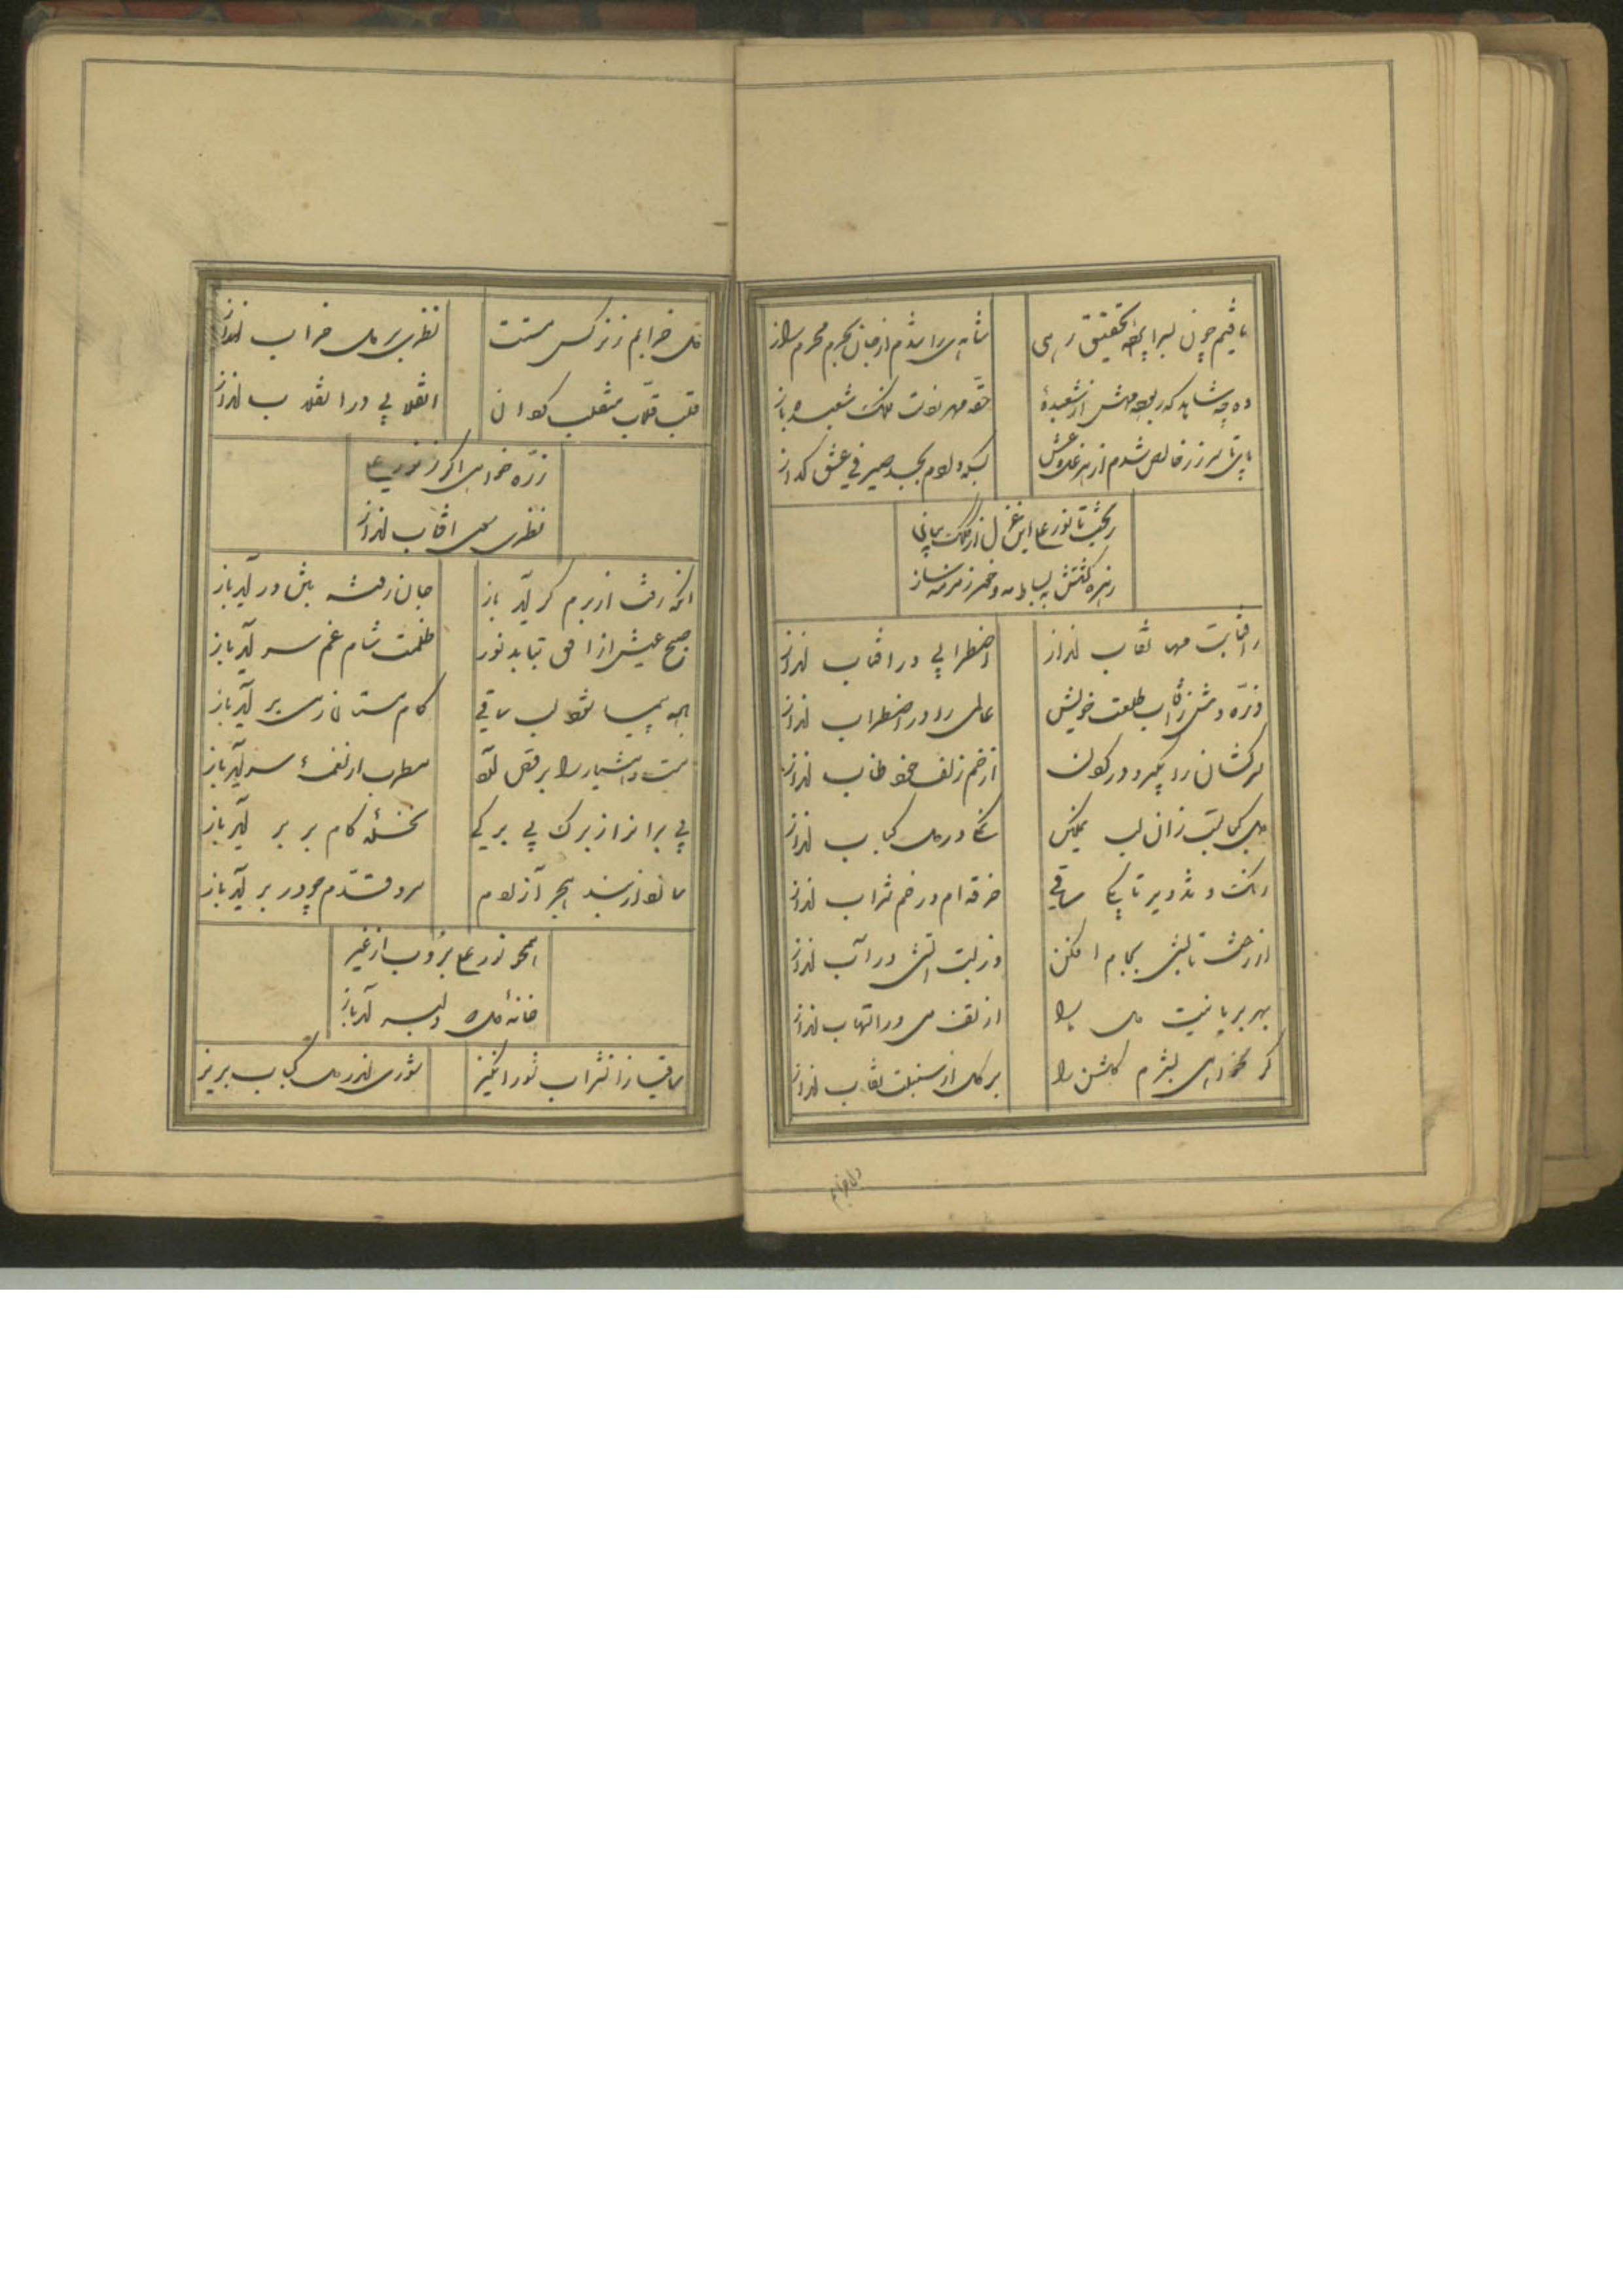 یافتیم چون بسراپرده تحقیق رهی
شاهدی را شدم از جان بحرم محرم راز
ده چه شاید که رباید مهش از شعبدهٔ
حقه مهر تو است فلک شعبده باز
پای تا سر زر خالص شدم از غل و غش
بسکه دادم بجسد صیرفی عشق گداز
ریخت تا نورعلی این غزل از کلک بیانی
زهره گشتش به بساط مه و خور زمزمه ساز
ز آفتابت مها نقاب انداز
اضطرابی در آفتاب انداز
ذره وش ز آفتاب طلعت خویش
عالمی را در اضطراب انداز
سرکشان را بگیر و در گردن
از خم زلف خود طناب انداز
دل کبابست زان لب نمکین
نمکی در دل کباب انداز
رنگ و تزویر تا بکی ساقی
خرقه ام در خم شراب انداز
از رخت تابشی بجام افکن
وز لبت آتش در آب انداز
بهر بریانیت دل ما را
از تف می در التهاب انداز
گر نخواهی بشرم گلشن را
بر گل از سنبلت نقاب انداز
دل خرابم ز نرگس مستت
نظری بر دل خراب انداز
قلب قلاب منقلب گردان
انقلابی در انقلاب انداز
ذره خواهی اگر ز نورعلی
نظری سوی آفتاب انداز
آنکه رفت از برم گر آید باز
جان رفته بتن در آید باز
صبح عیش از افق بتابد نور
ظلمت شام غم سر آید باز
به پیما شود لب ساقی
کام مستان ز می بر آید باز
مست و هشیار را برقص آرد
مطرب از نغمهٔ سر آید باز
پی بر از برگ بی برگی
نخلهٔ کام بر بر آید باز
ما نو از بند هجر آزادم
سرو قدم چو در بر آید باز
همچو نورعلی بروب از غیر
خانهٔ دل دلبر آید باز
ساقیا زان شراب شورانگیز
شوری اندر دل کباب بریز
دل خرابم